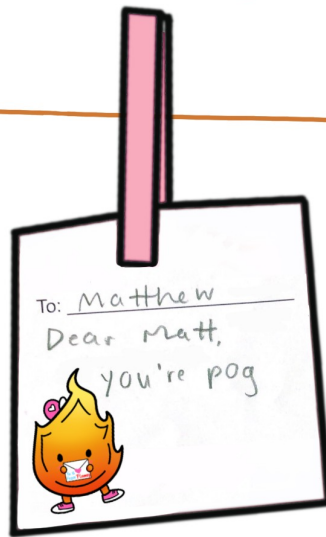 To: Matthew
Dear Matt,
you're pog